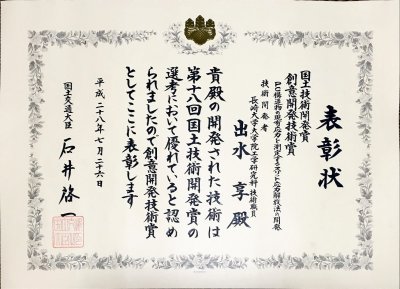 表彰状
国土技術開発賞
創意開発技術賞
PC構造物の現有応力を測定するスリット応力解放法の開発
技術開発者
長崎大学大学院工学研究科技術職員
出水 享 殿
貴殿の開発された技術は
第十八回国土技術開発賞の
選考において優れていると認め
られましたので創意開発技術賞
としてここに表彰します
平成二十八年七月二十六日
国土交通大臣 石井啓一